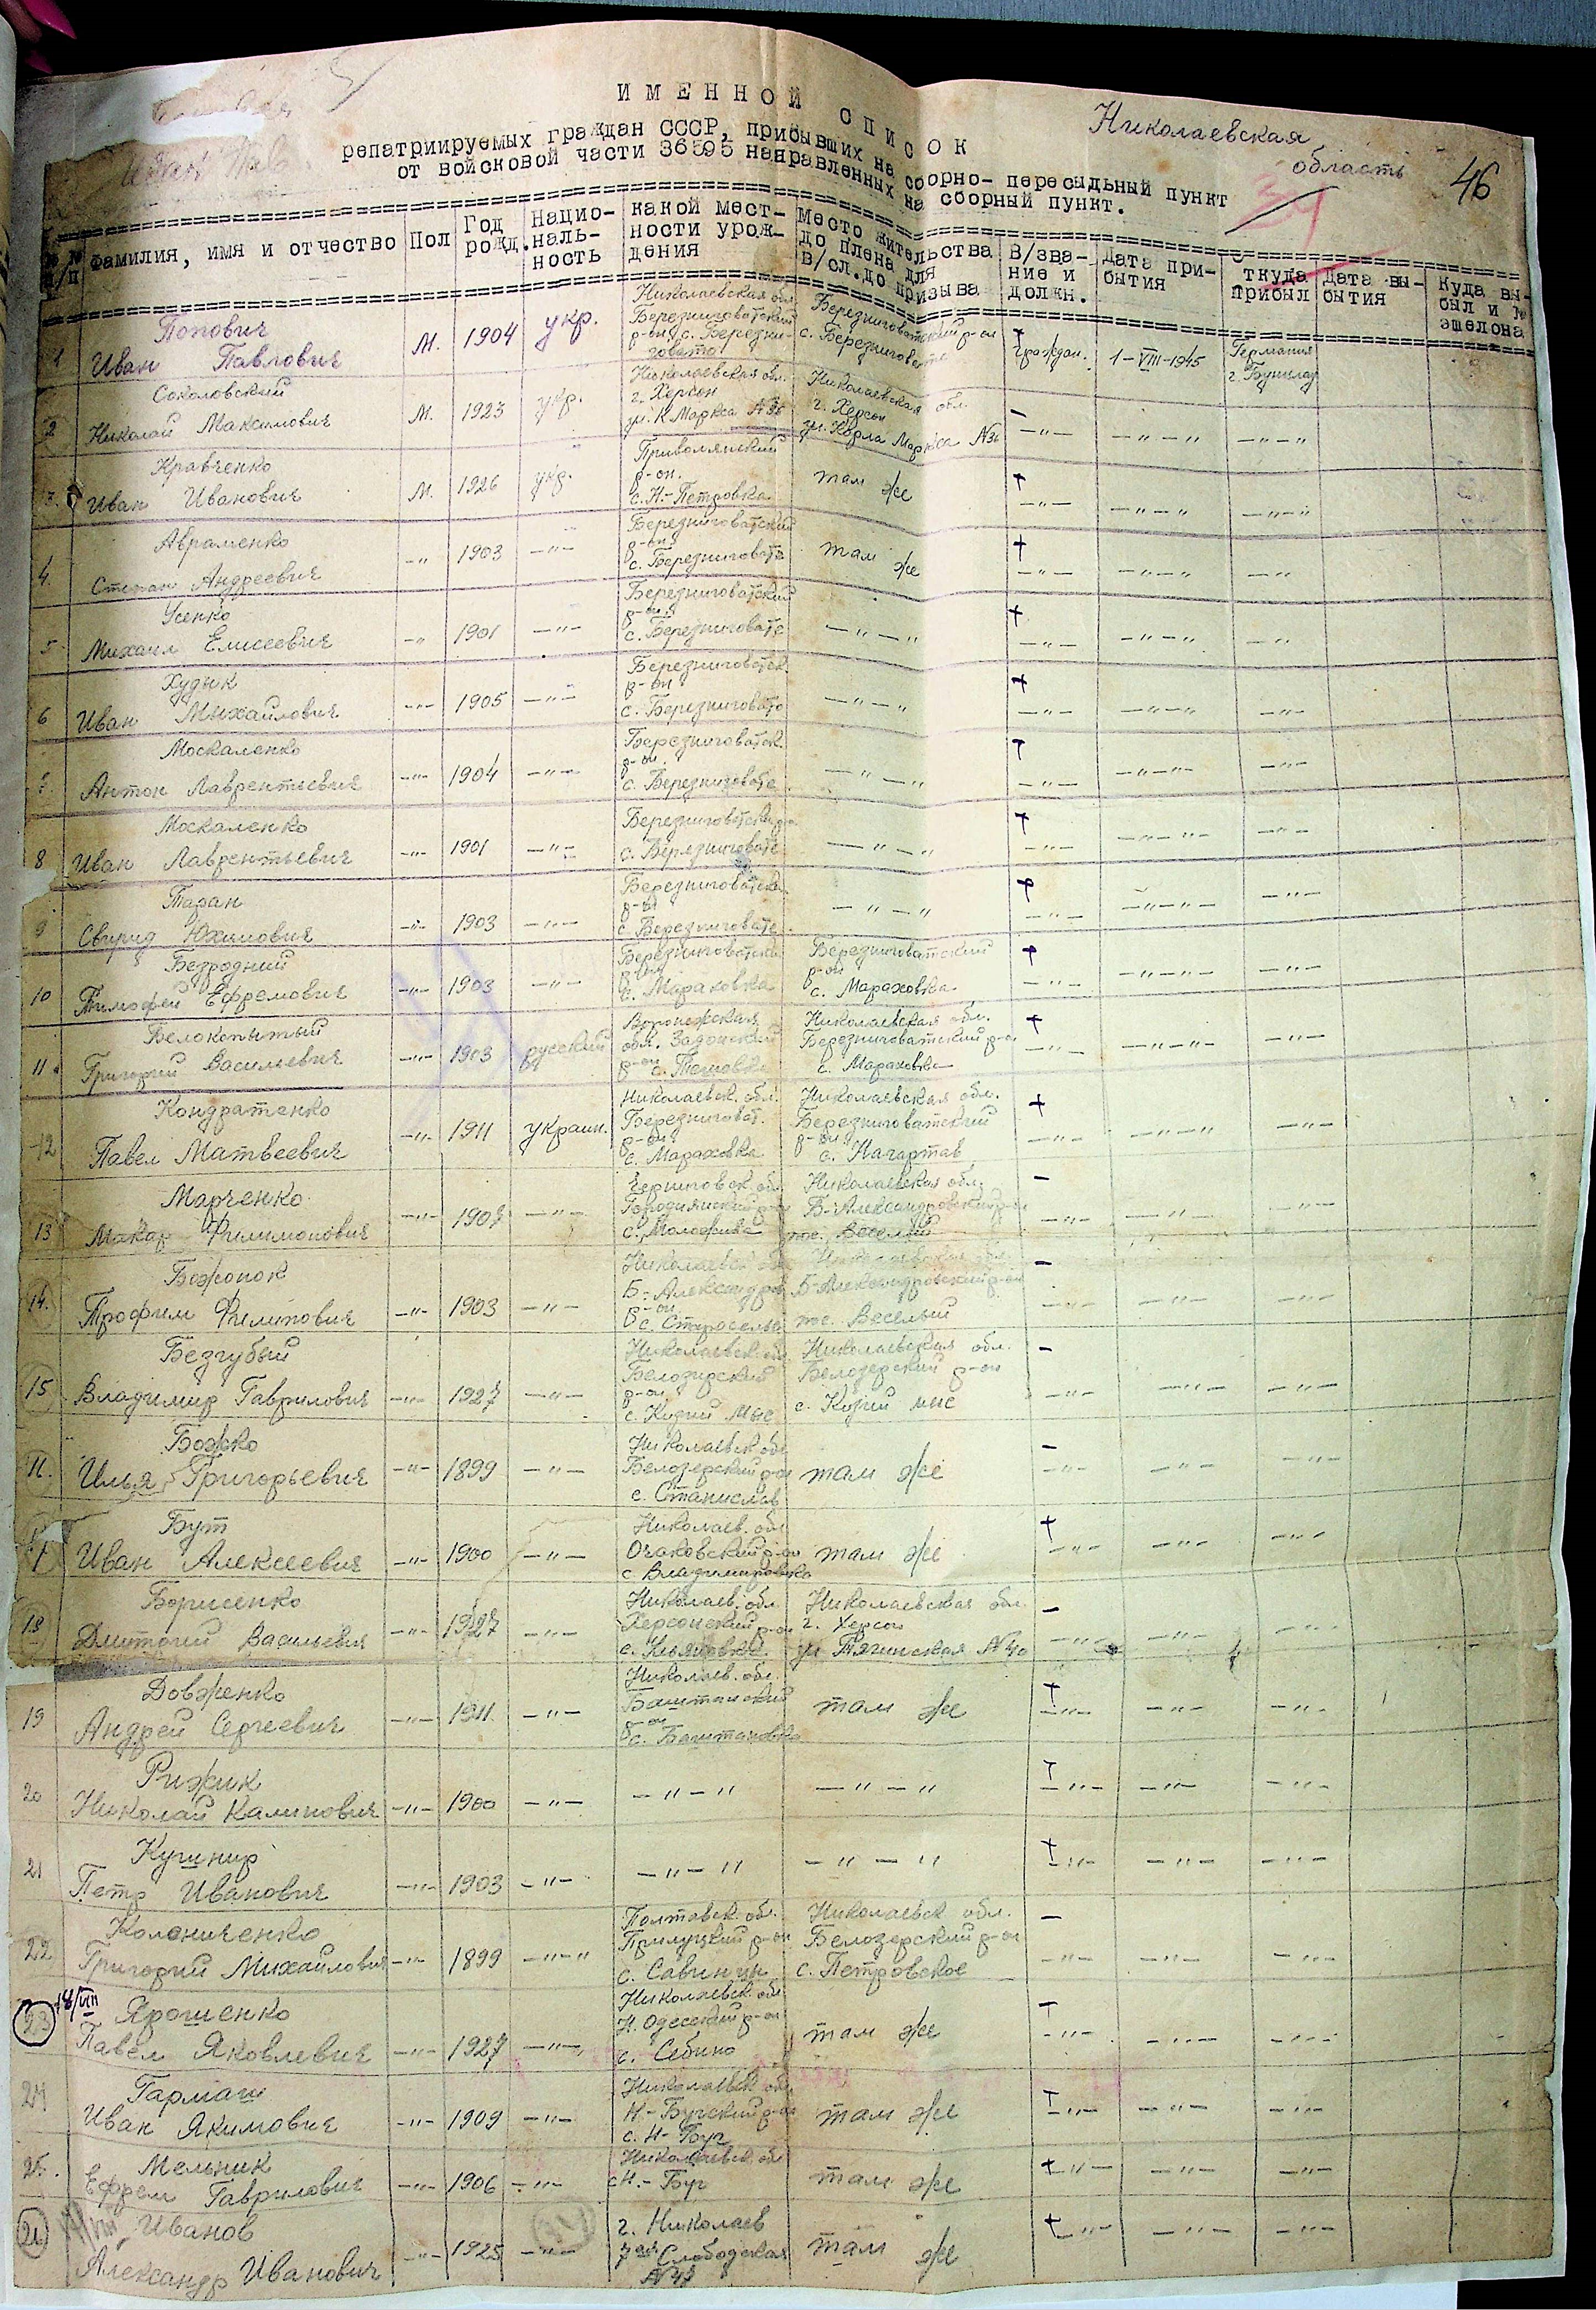 ИМЕННОЙ СПИСОК
репатриируемых граждан СССР, прибывших на сборно- пересыльный пункт
от войсковой части 36595 направленных на сборный пункт.
Николаевская
область
46
№№ п/п
Фамилия, имя и отчество
Пол
Год рожд.
Нацио-наль-ность
какой мест-ности урож-дения
Место жительства до плена для в/сл.до призыва
В/зва-ние и должн.
Дата при-бытия
ткуда прибыл
Дата вы-бытия
Куда вы-был и № эшелона
1 Попович Иван Павлович М. 1904 укр. Николаевская обл. Березниговатский р-он, с. Березни-говато Березниговатский р-он с. Березниговате + Граждан. 1-VIII-1945 Германия г. Бунцлау
2 Соколовский Николай Максимович М. 1923 укр. Николаевская обл. г. Херсон ул. К Маркса №36 Николаевская обл. г. Херсон ул. Карла Маркса №36 – -"- -"-" -"-"
3. Кравченко Иван Иванович М. 1926 укр. Приволянский р-он. с. Н.-Петровка там же + -"- -"-" -"-"
4. Авраменко Степан Андреевич -" 1903 -"- Березниговатский р-он с. Березниговате там же + -"- -"-"- -"-
5 Усенко Михаил Елисеевич -" 1901 -"- Березниговатский р-он. с. Березниговате -"-" + -"- -"-"- -"-
6 Худык Иван Михайлович -"- 1905 -"- Березниговатск. р-он с. Березниговато -"-" + -"- -"-"- -"-
7. Москаленко Антон Лаврентьевич -"- 1904 -"- Березниговатск. р-он. с. Березниговате -"-" + -"- -"-"- -"-
8 Москаленко Иван Лаврентьевич -"- 1901 -"- с. Березниговате -"-" + -"- -"-"- -"-
9 Таран Свирид Юхимович -"- 1903 -"- р-он с Березниговате -"-" + -"- -"-"- -"-
10 Безродний Тимофей Ефремович -"- 1903 -"- р-он с. Мараховка Березниговатский р-он с. Мараховка + -"- -"-"- -"-
11 Белокопытый Григорий Васильевич -"- 1903 русский Воронежская обл. Задонский р-он с. Березниговатский р-он Николаевская обл. с. Мараховка + -"- -"-"- -"-
12 Кондратенко Павел Матвеевич -"- 1911 украин. Николаевск. обл. Березниговат. р-он с. Мараховка Николаевская обл. Березниговатский р-он с. Нагартав + -"- -"-" -"-
13 Марченко Макар Филимонович -"- 1907 -"- Черниговск обл. Городнянский р-он с. Николаевская обл. Б-Александровский р-он пос. Веселый – -"- -"- -"-
14. Божонок Трофим Филипович -"- 1903 -"- Николаевск обл Б-Александров. р-он с. Староселье Николаевская обл. Б-Александровский р-он пос. Веселый – -"- -"- -"-
15 Безгубый Владимир Гаврилович -"- 1927 -"- Николаевск обл Белозирский р-он с. Кизий Мыс Николаевская обл. Белозерский р-он с. Кизий мыс – -"- -"- -"-
16. Божко Илья Григорьевич -"- 1899 -"- Николаевск обл Белозерский р-он с. Станислав там же – -"- -"- -"-
Бут Иван Алексеевич -"- 1900 -"- Николаев. обл Очаковский р-он с Владимировка там же + -"- -"- -"-
18 Борисенко Дмитрий Васильевич -"- 1927 -"- Николаев. обл Херсонский р-он с. Николаевская обл. г. Херсон ул Тягинская №40 – -"- -"- -"-
19 Довженко Андрей Сергеевич -"- 1911. -"- Николаев. обл. Баштанский р-он с. Баштановка там же + -"- -"- -"-
20 Рижик Николай Калинович -"- 1900 -"- -"-" -"-" + -"- -"- -"-
21 Кушнир Петр Иванович -"- 1903 -"- -"-" -"-" + -"- -"- -"-
22 Колониченко Григорий Михайлович -"- 1899 -"-" Полтавск. обл. Прилуцкий р-он с. Савинцы Николаевск обл. Белозерский р-он с. Петровское – -"- -"- -"-
23 18/VIII Ярошенко Павел Яковлевич -"- 1927 -"- Николаевск. обл Н. Одесский р-он с. Себино там же + -"- -"- -"-
24 Гармаш Иван Якимович -"- 1909 -"- Николаевск обл Н-Бугский р-он с. Н-Буг там же + -"- -"- -"-
25. Мельник Ефрем Гаврилович -"- 1906 -"- Николаевск обл с Н.-Буг там же + -"- -"- -"-
26 Иванов Александр Иванович -"- 1925 -"- г. Николаев 7ая Слободская №47 там же + -"- -"- -"-